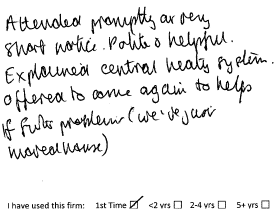 Attended promptly at very
short notice. Polite & helpful.
Explained central heating system.
offered to come again to help
if further problem (we've just
moved house)
I have used this firm: 1st Time ☑ <2 yrs ☐ 2-4 yrs ☐ 5+ yrs ☐